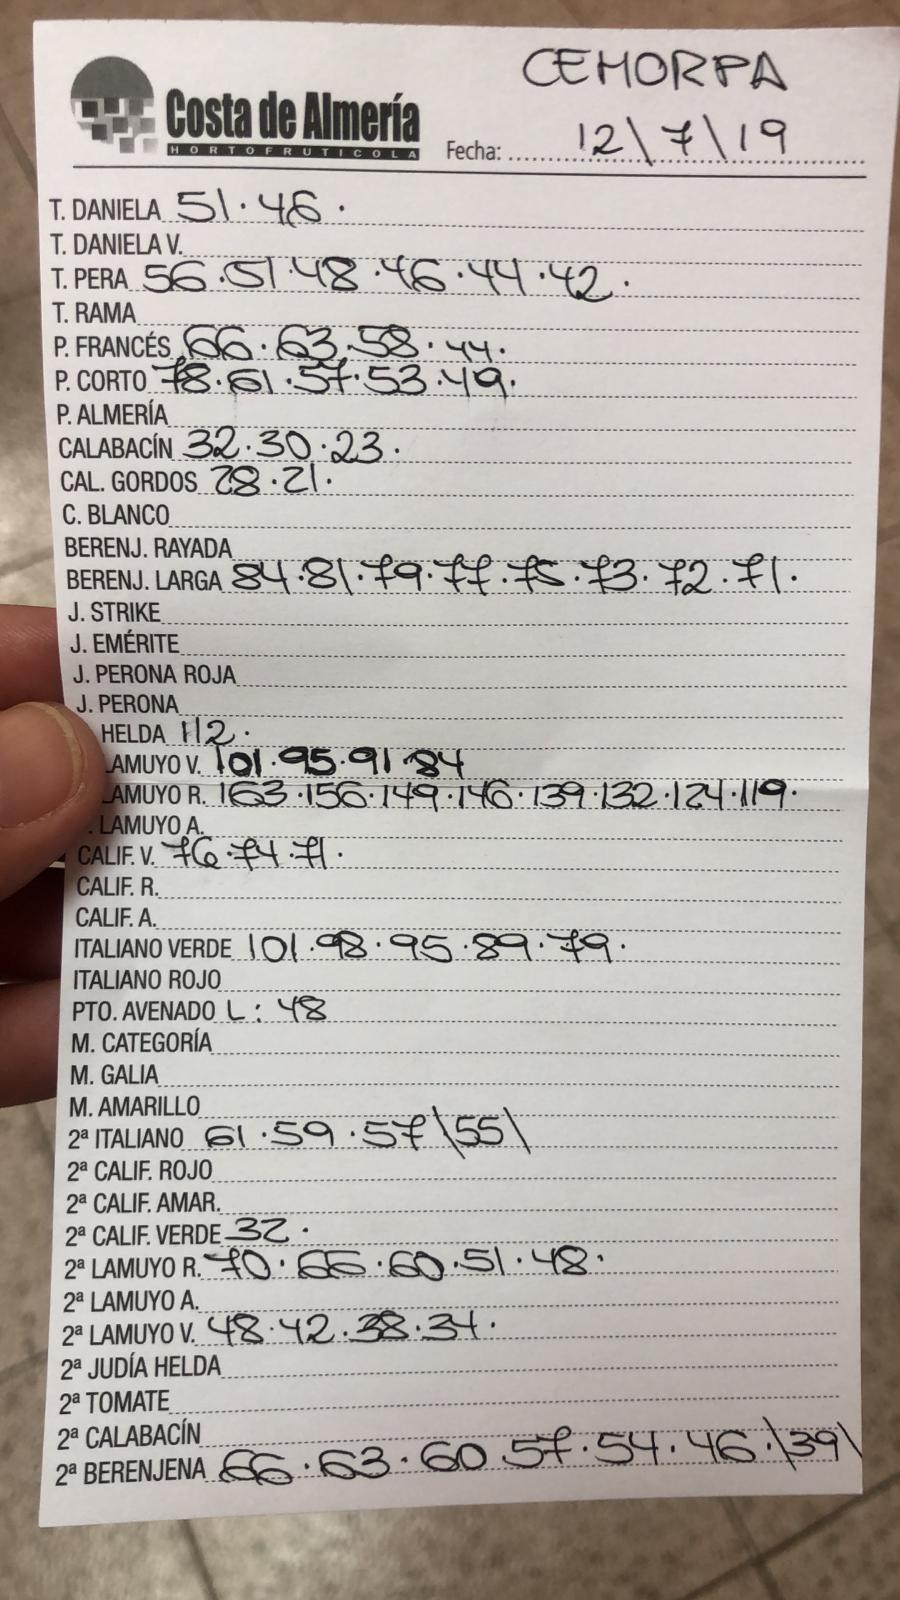 CEHORPA
Costa de Almería
HORTOFRUTICOLA
Fecha: 12\7\19
T. DANIELA 51·46·
T. DANIELA V.
T. PERA 56·51·48·46·44·42·
T. RAMA
P. FRANCÉS 66·63·58·44·
P. CORTO 78·61·57·53·49·
P. ALMERÍA
CALABACÍN 32·30·23·
CAL. GORDOS 28·21·
C. BLANCO
BERENJ. RAYADA
BERENJ. LARGA 84·81·79·77·75·73·72·71·
J. STRIKE
J. EMÉRITE
J. PERONA ROJA
J. PERONA
HELDA 112·
LAMUYO V. 101·95·91·84
LAMUYO R. 163·156·149·146·139·132·124·119·
. LAMUYO A.
CALIF. V. 76·74·71·
CALIF. R.
CALIF. A.
ITALIANO VERDE 101·98·95·89·79·
ITALIANO ROJO
PTO. AVENADO L: 48
M. CATEGORÍA
M. GALIA
M. AMARILLO
2ª ITALIANO 61·59·57\55\
2ª CALIF. ROJO
2ª CALIF. AMAR.
2ª CALIF. VERDE 32·
2ª LAMUYO R. 70·66·60·51·48·
2ª LAMUYO A.
2ª LAMUYO V. 48·42·38·34·
2ª JUDÍA HELDA
2ª TOMATE
2ª CALABACÍN
2ª BERENJENA 66·63·60·57·54·46·\39\